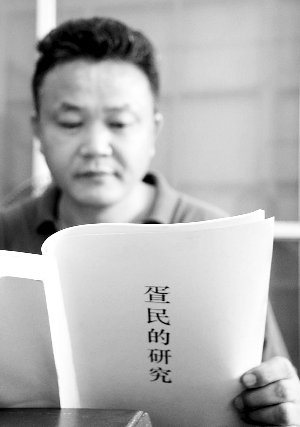 疍民的研究